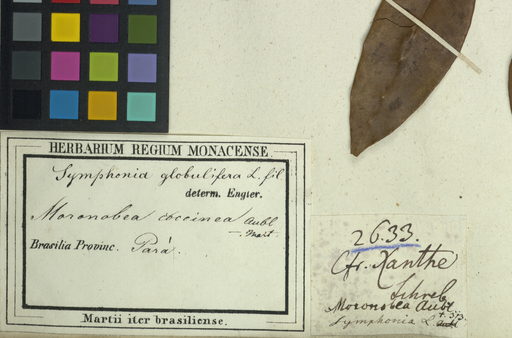 HERBARIUM REGIUM MONACENSE.
Symphonia globulifera L. fil
determ. Engler.
Moronobea coccinea Aubl
– Mart.
Brasilia Provinc. Pará.
Martii iter brasiliense.
2633.
Cfr. Xanthe
Schreb.
Moronobea Aubl.
Symphonia L.